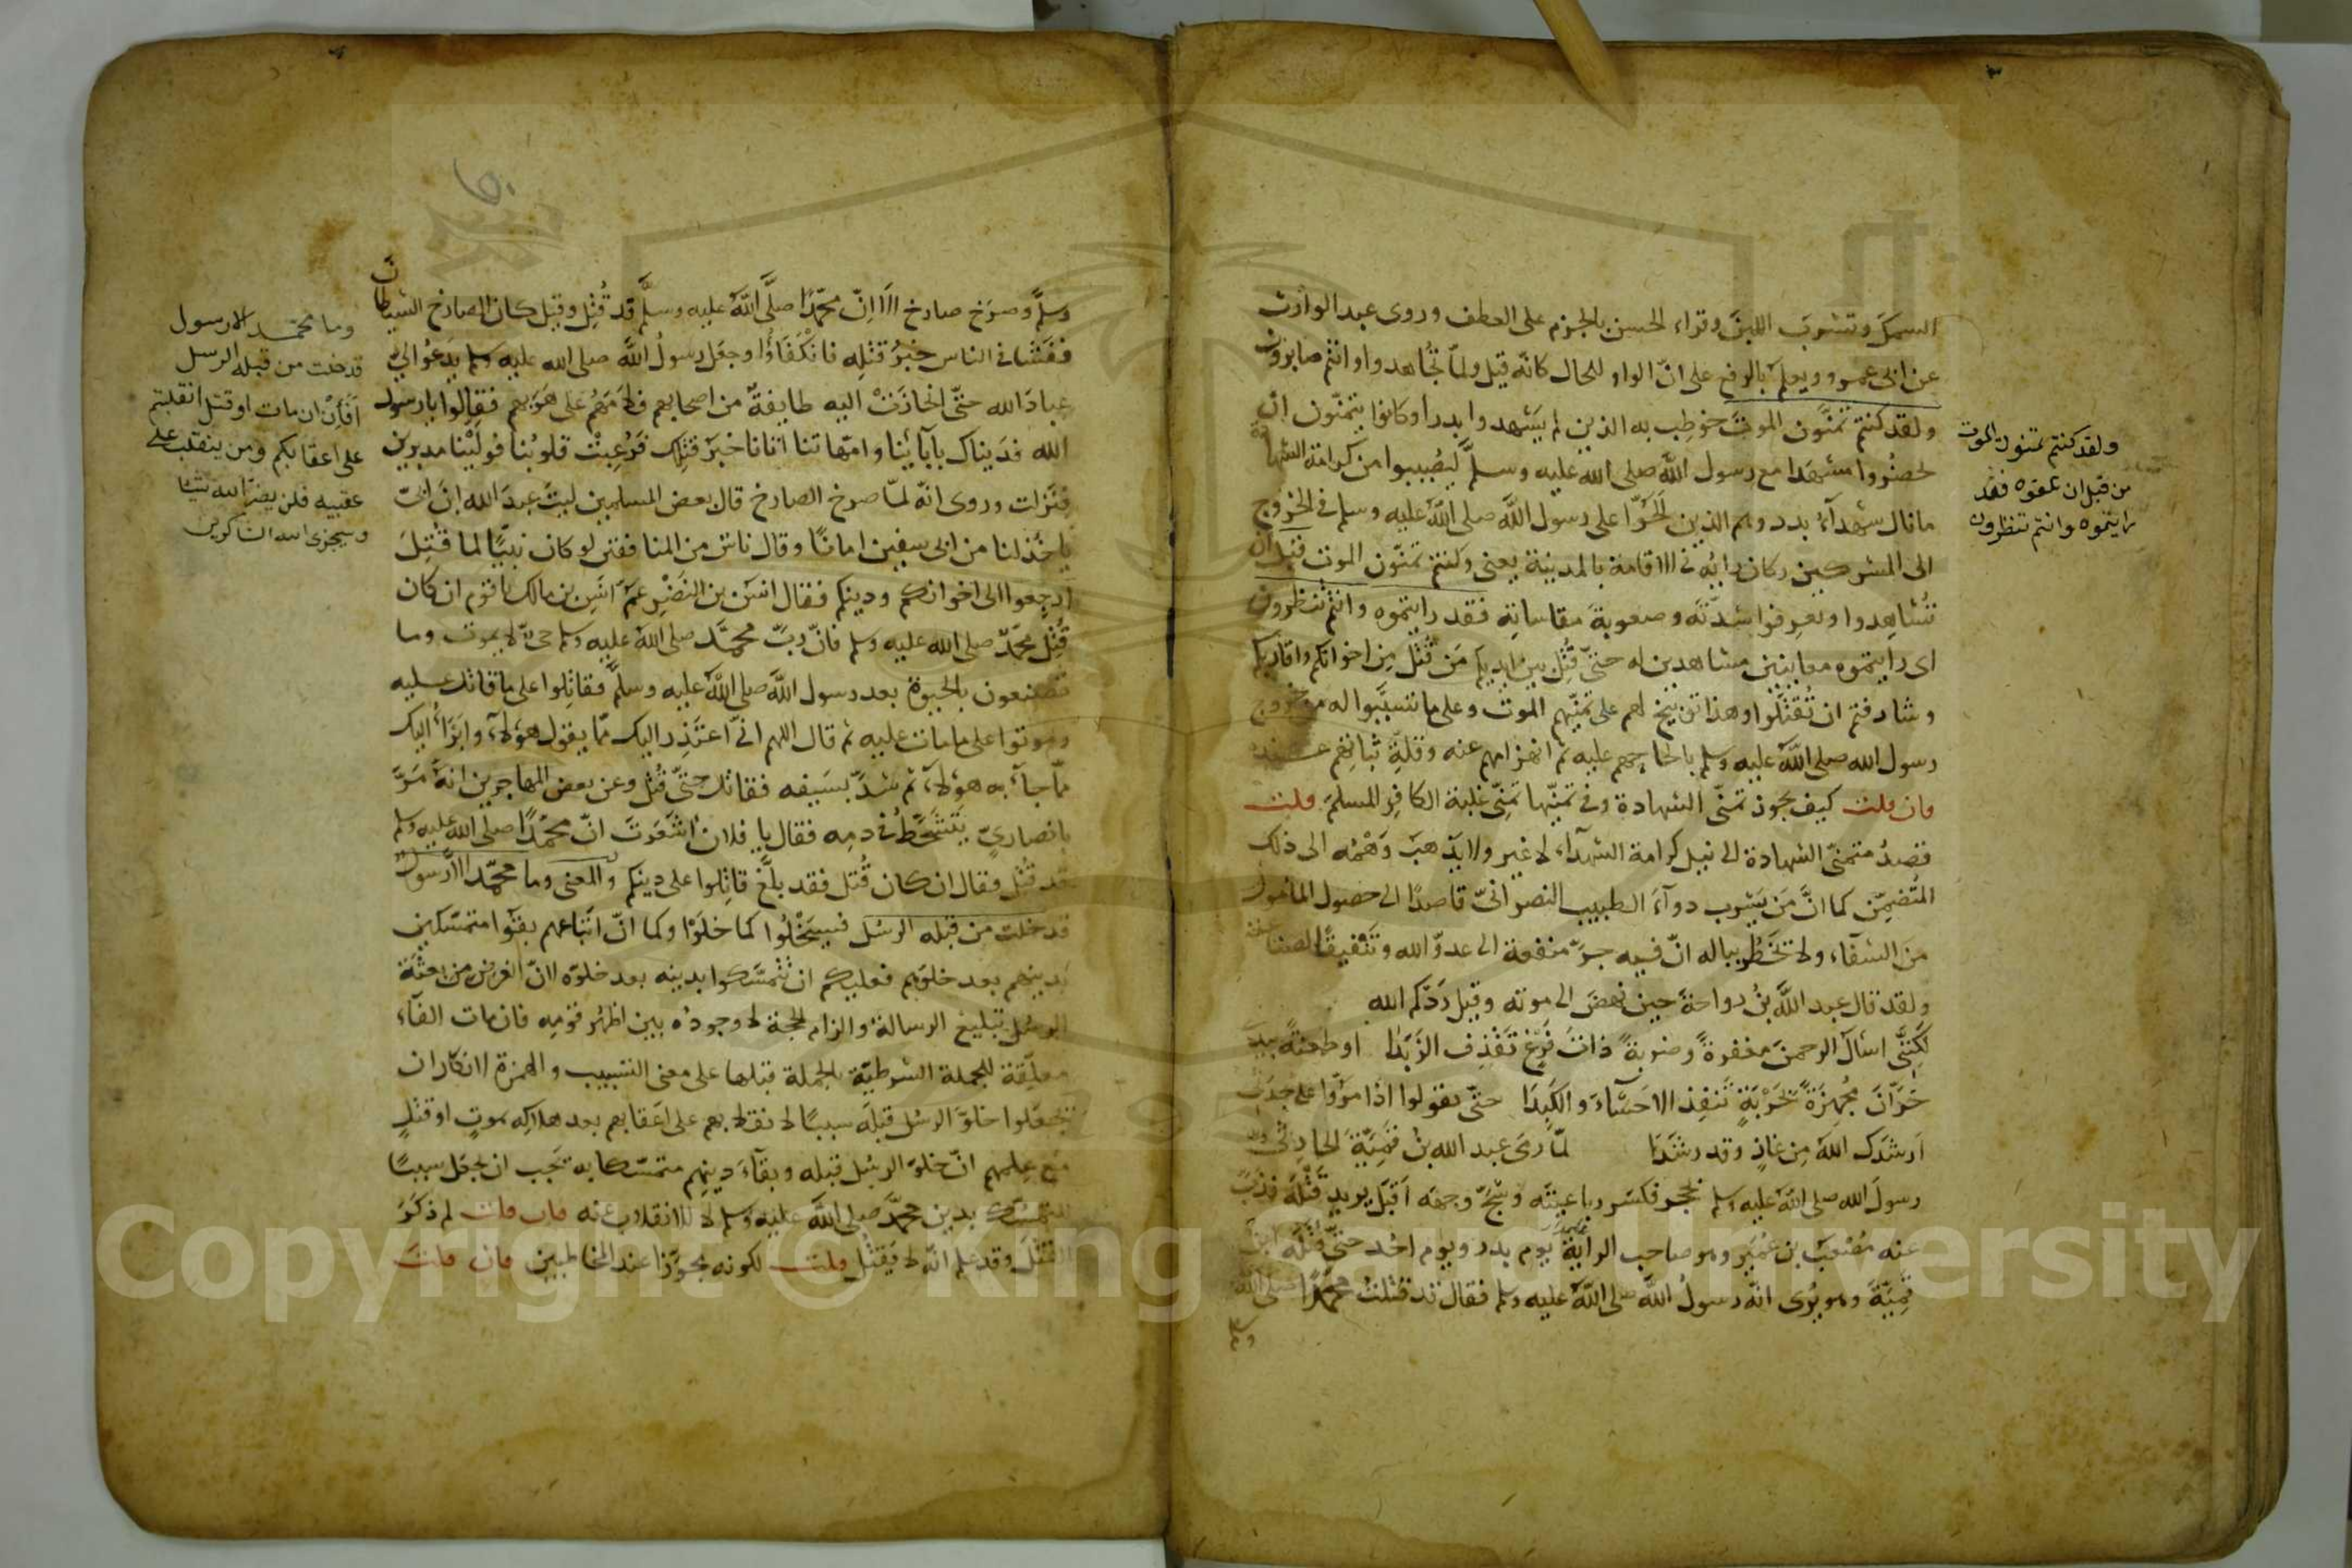 السمكَ وتشربَ اللبنَ وقراء الحسن بالجزم على العطف وروى عبد الوارث
عن ابى عمرو ويعلمُ بالرفع على انّ الواو للحال كانّه قيل ولمّا تجُاهدوا وانتم صابرون
ولقد كنتم تمنَّون الموتَ خوطِب به الذين لم يَشهدوا بدرا وكانوا يتمنّون ان
يحضُروا مشهَدا مع رسول اللَّه صلى الله عليه وسلَّم ليُصيبوا من كرامة الشهادة
ما نال شهدآءُ بدر وهم الذين اَلَحّوا على رسول اللَّه صلى اللَّه عليه وسلم فى الخروج
الى المشركين وكان رايُه فى الاقامة بالمدينة يعنى وكنتم تمنّون الموت قبل ان
تُشاهِدوا وتعرِفوا شدّتَه وصعوبةَ مقاساتِه فقد رايتموه وانتم تنظرون
اى رايتموه معاينين مشاهدين له حتّى قُتِل بين ايديكم مَن قُتل مِن اخوانكم واقاربكم
وشارفتم ان تُقتَلوا وهذا توبيخ لهم على تمنّيهم الموتَ وعلى ما تسبَّبوا له من خروج
رسول الله صلى اللَّه عليه وسلم بالحاحهم عليه ثم انهزامهم عنه وقلةِ ثباتِهم عنده
فان قلت كيف يجوز تمنّى الشهادة وفى تمنّيها تمنّى غلبة الكافِر المسلمَ قلت
قصدُ متمنّى الشهادة الى نيل كرامة الشهدآء لا غير ولا يَذهبُ وَهْمُه الى ذلك
المُتضمَّن كما انَّ مَن يَشرب دوآءَ الطبيب النصرانىّ قاصدًا الى حصول المامول
من الشفآء ولا تخطُر بباله انّ فيه جرّ منفعة الى عدوّ الله وتنفيقًا لصناعته
ولقد قال عبد اللَّه بنُ رواحةَ حين نهضَ الى موته وقيل رَدّكم الله
لكنَّنى اسئل الرحمنَ مغفرةً وضربةً ذاتَ فَرغٍ تَقذِف الزَبَدَا او طعنةً بيدى
حَرَّانَ مُجهِزَةً بحَرْبَةٍ تُنفِذ الاحشآءَ والكبدَا حتّى يقولوا اذا مرّوا على جدثى
اَرشدَك اللَّه مِن غازٍ وقد رشَدَا لمّا رمَى عبد الله بن قَمِيَّةَ الحارثى
رسولَ الله صلى اللَّه عليه وسلم بحجر فكسَر رباعيتَه وشجَّ وجهَه اَقبَل يريد قَتْلَه فذبّ
عنه مُصْعَبُ بن عُمَير وهو صاحب الراية يوم بدر ويوم احُد حتّى قتَلَه ابنُ
قمِيّة وهو يُرى انّه رسولُ اللَّه صلى اللَّه عليه وسلم فقال قد قتلتُ محمّدًا صلى الله
وسلم
ولقد كنتم تمنون الموت
من قبل ان تلقوه فقد
رايتموه وانتم تنظرون
وسلَّم وصرَخ صارخ اَلَا اِنّ محمّدًا صلَّى اللَّه عليه وسلَّم قد قُتِل وقيل كان الصارخ الشيطان
ففَشا فى الناس خبرُ قتلِه فانْكفَاوُا وجعَل رسولُ اللَّه صلى الله عليه وسلم يدعُو الىَّ
عبادَ الله حتّى انحازَتْ اليه طايفةٌ من اصحابهم فلامَهُم على هَرَبِهم فقالوا يا رسول
الله فدَيناك بآبآئنا وامّهاتنا اتانا خبَرُ قتلِك فرَعِبتْ قلوبُنا فولّيْنا مدبرين
فنَزلت وروى انّه لمّا صرخ الصارخ قال بعض المسلمين ليتَ عبدَ الله ابنَ ابىّ
ياخُذ لنا من ابى سفين امانًا وقال ناس من المنافقين لو كان نبيًّا لما قُتِلَ
ارجِعوا الى اخوانكم ودينِكم فقال انسُ بن النَضْرِ عمّ انسِ بن مالك يا قومِ ان كان
قُتِل محمّدٌ صلى الله عليه وسلم فانّ ربَّ محمَّد صلى اللَّه عليه وسلم حىّ لا يموت وما
تصنعون بالحيوة بعد رسول اللَّه صلى اللَّه عليه وسلَّم فقاتِلوا على ما قاتَل عليه
وموتوا على ما مات عليه ثم قال اللهم انّى اعتَذِر اليك ممّا يقول هؤلآء وابَرَأُ اليك
ممّا جآء به هؤلآء ثم شدَّ بسَيفه فقاتل حتّى قُتِل وعن بعض المهاجرين انّه مَرَّ
بانصاريّ يتَشحَّطُ فى دمِه فقال يا فلان اَشَعَرتَ انّ محمّدًا صلى الله عليه وسلم
قد قُتل فقال ان كان قُتل فقد بلَّغ قاتِلوا على دينكم والمعنى وما محمّد الّا رسول
قد خلت من قبله الرسُل فسيَخْلُوا كما خلَوْا وكما انّ اتباعهم بقوا متمسّكين
بدينهم بعد خلوّهم فعليكم ان تتمسَّكوا بدينه بعد خلوّه لانّ الغرض من بعثة
الرسُل تبليغ الرسالة والزام الحجة لا وجودُه بين اظهُر قومِه فان مات الفآء
معلّقة للجملة الشرطيّة بالجملة قبلها على معنى التسبيب والهمزة لانكار ان
يجعلوا خلوّ الرسُل قبلَه سببًا لانقلابهم على اَعقابهم بعد هلاكِه بموتٍ او قتلٍ
مع عِلمهم انّ خلوّ الرسُل قبله وبقآءَ دينِهم متمسّكا به تجب ان يجعَل سببًا
للتمسّك بدين محمَّد صلى اللَّه عليه وسلم لا للانقلاب عنه فان قلت لم ذكَرَ
القتلَ وقد علم انّه لا يُقتَل قلت لكونه مجوَّزا عند المخاطبين فان قلتَ
وما محمّد الا رسول
قد خلت من قبله الرسل
اَفَاِن مات او قتل انقلبتم
على اعقابكم ومن ينقلب على
عقبيه فلن يضرّ الله شيئا
وسيجزى الله الشاكرين
Copyright © King Saud University